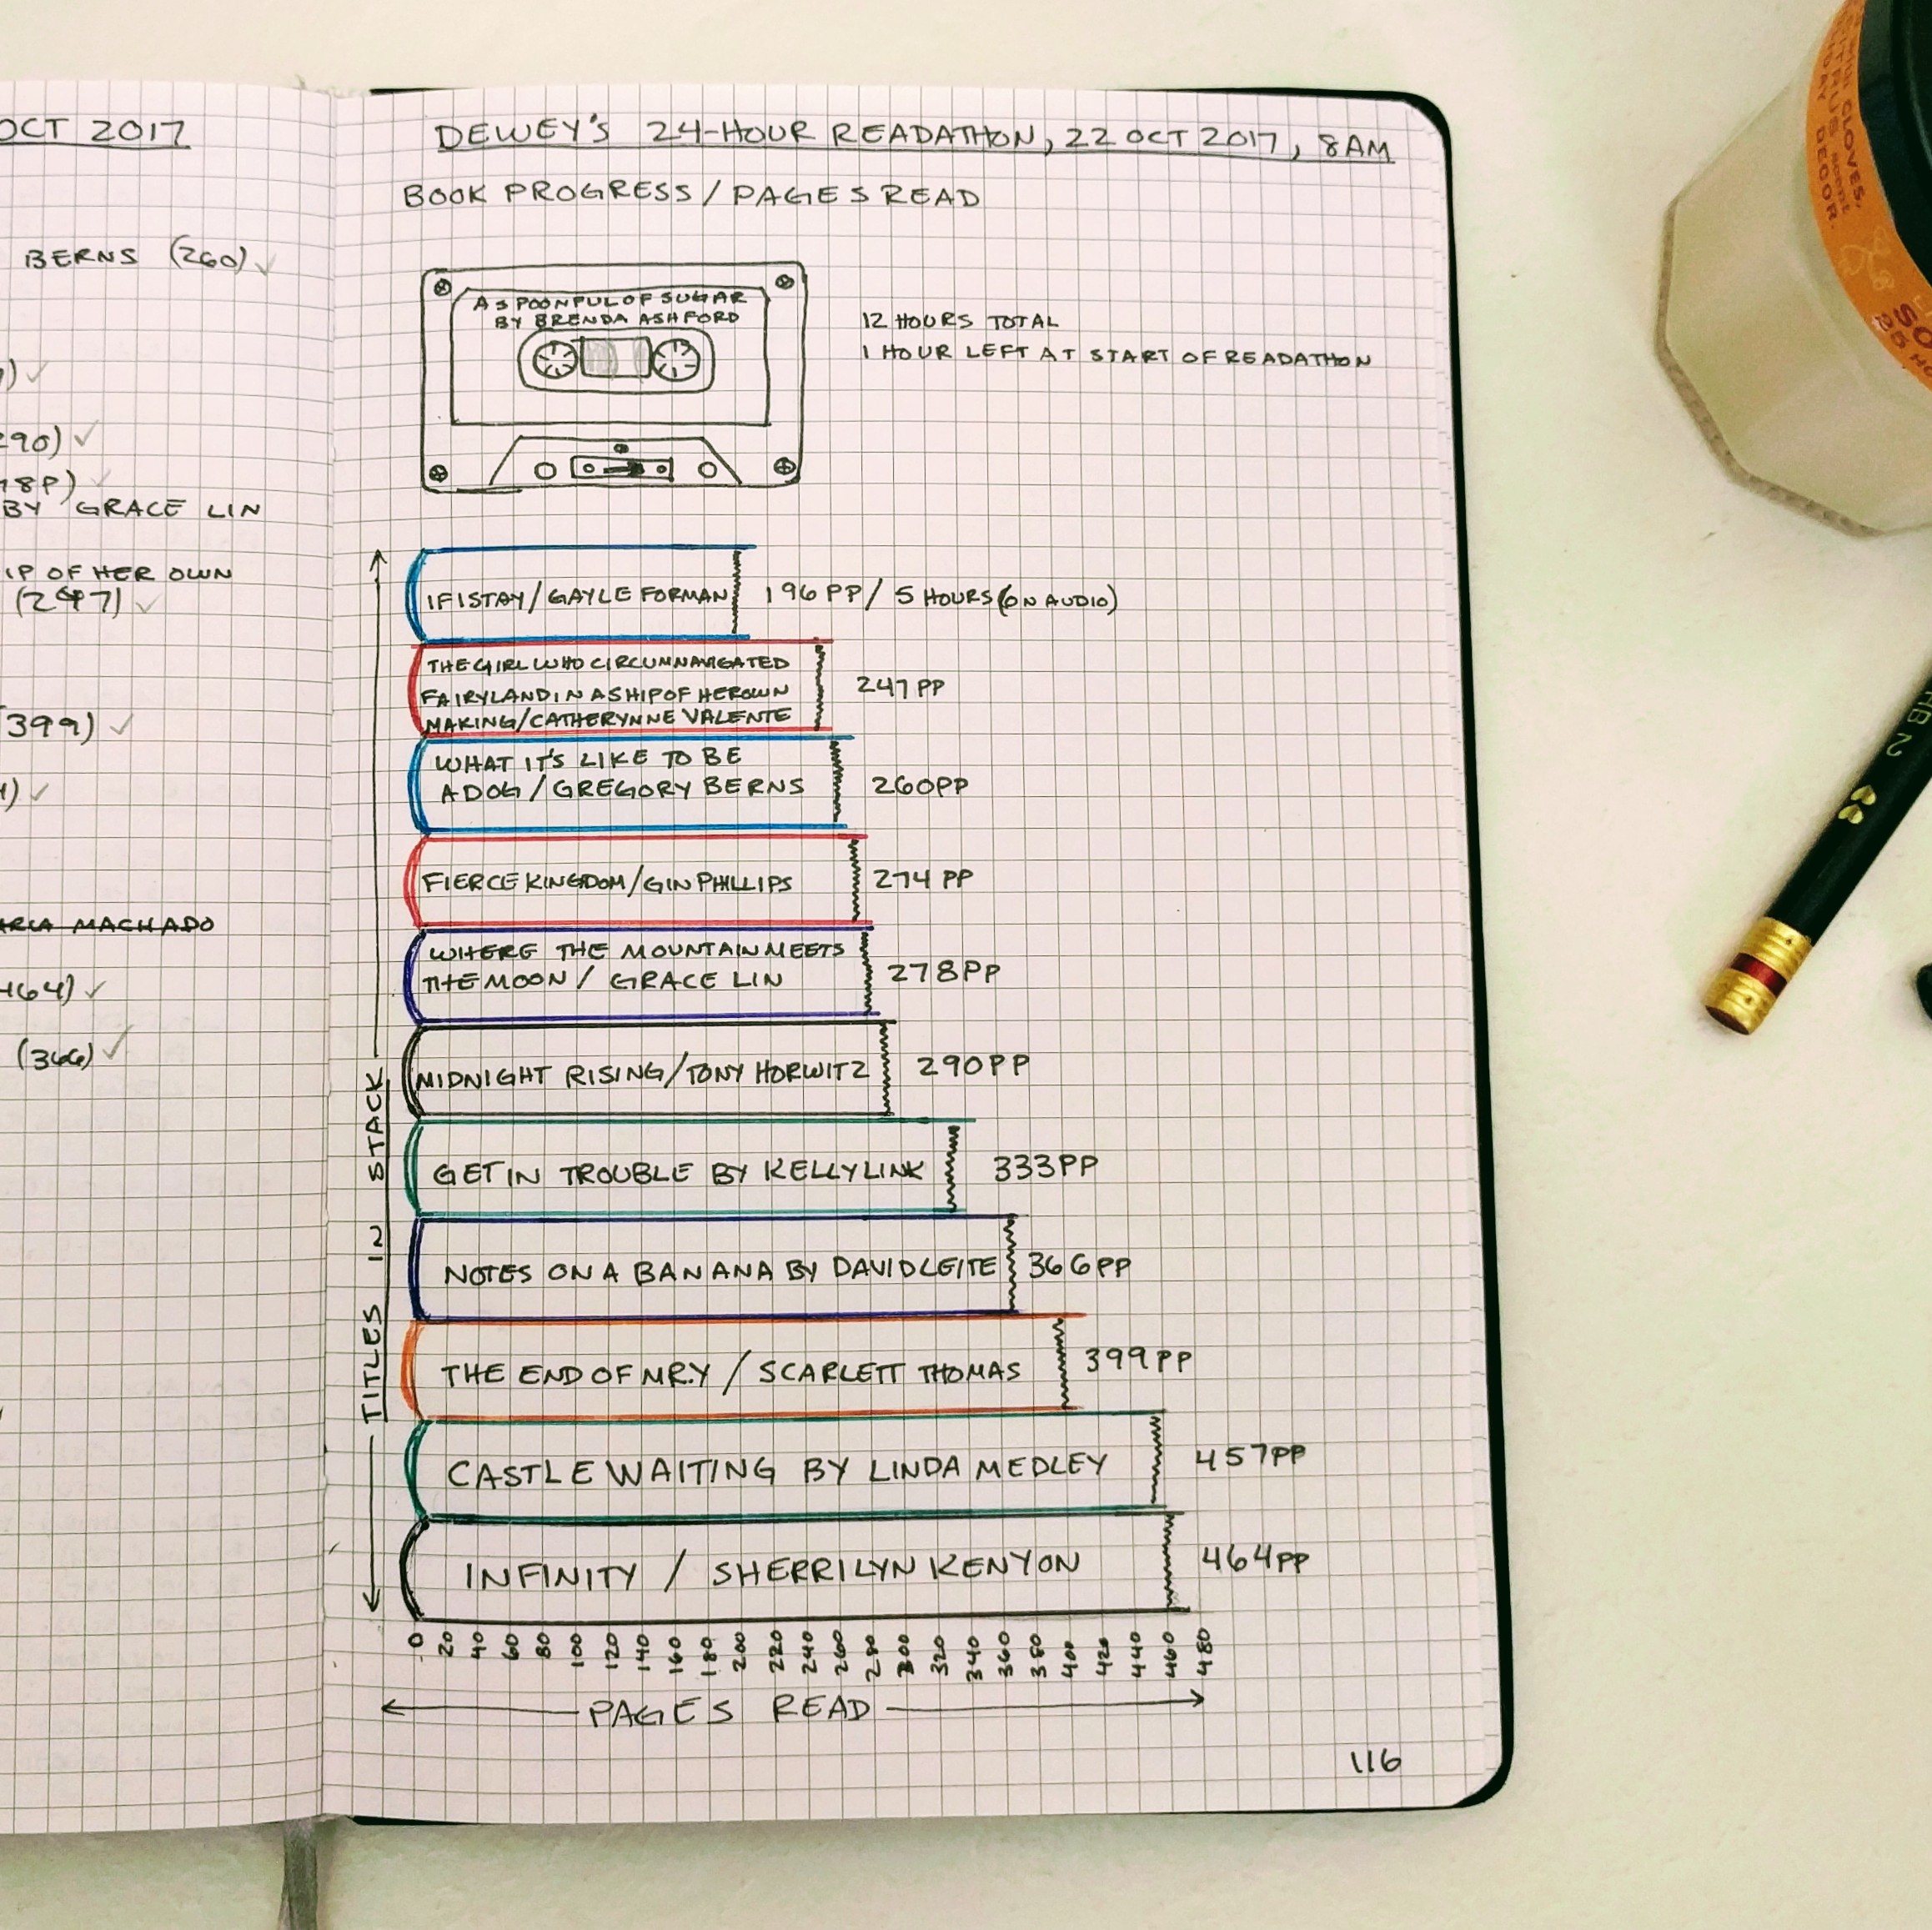 OCT 2017
BERNS (260) ✓
) ✓
290) ✓
78P) ✓
BY GRACE LIN
IP OF HER OWN
(247) ✓
(399) ✓
) ✓
MACHADO
464) ✓
(366) ✓
DEWEY'S 24-HOUR READATHON, 22 OCT 2017, 8AM
BOOK PROGRESS / PAGES READ
A SPOONFUL OF SUGAR
BY BRENDA ASHFORD
12 HOURS TOTAL
1 HOUR LEFT AT START OF READATHON
TITLES IN STACK
IF I STAY / GAYLE FORMAN 196 PP / 5 HOURS (ON AUDIO)
THE GIRL WHO CIRCUMNAVIGATED
FAIRYLAND IN A SHIP OF HER OWN
MAKING / CATHERYNNE VALENTE
247 PP
WHAT IT'S LIKE TO BE
A DOG / GREGORY BERNS
260PP
FIERCE KINGDOM / GIN PHILLIPS 274 PP
WHERE THE MOUNTAIN MEETS
THE MOON / GRACE LIN
278PP
MIDNIGHT RISING / TONY HORWITZ 290PP
GET IN TROUBLE BY KELLY LINK 333PP
NOTES ON A BANANA BY DAVID LEITE 366PP
THE END OF MR. Y / SCARLETT THOMAS 399PP
CASTLE WAITING BY LINDA MEDLEY 457PP
INFINITY / SHERRILYN KENYON 464PP
0 20 40 60 80 100 120 140 160 180 200 220 240 260 280 300 320 340 360 380 400 420 440 460 480
PAGES READ
116
GLOVES,
DECOR.
SO
25 HO
HB 2